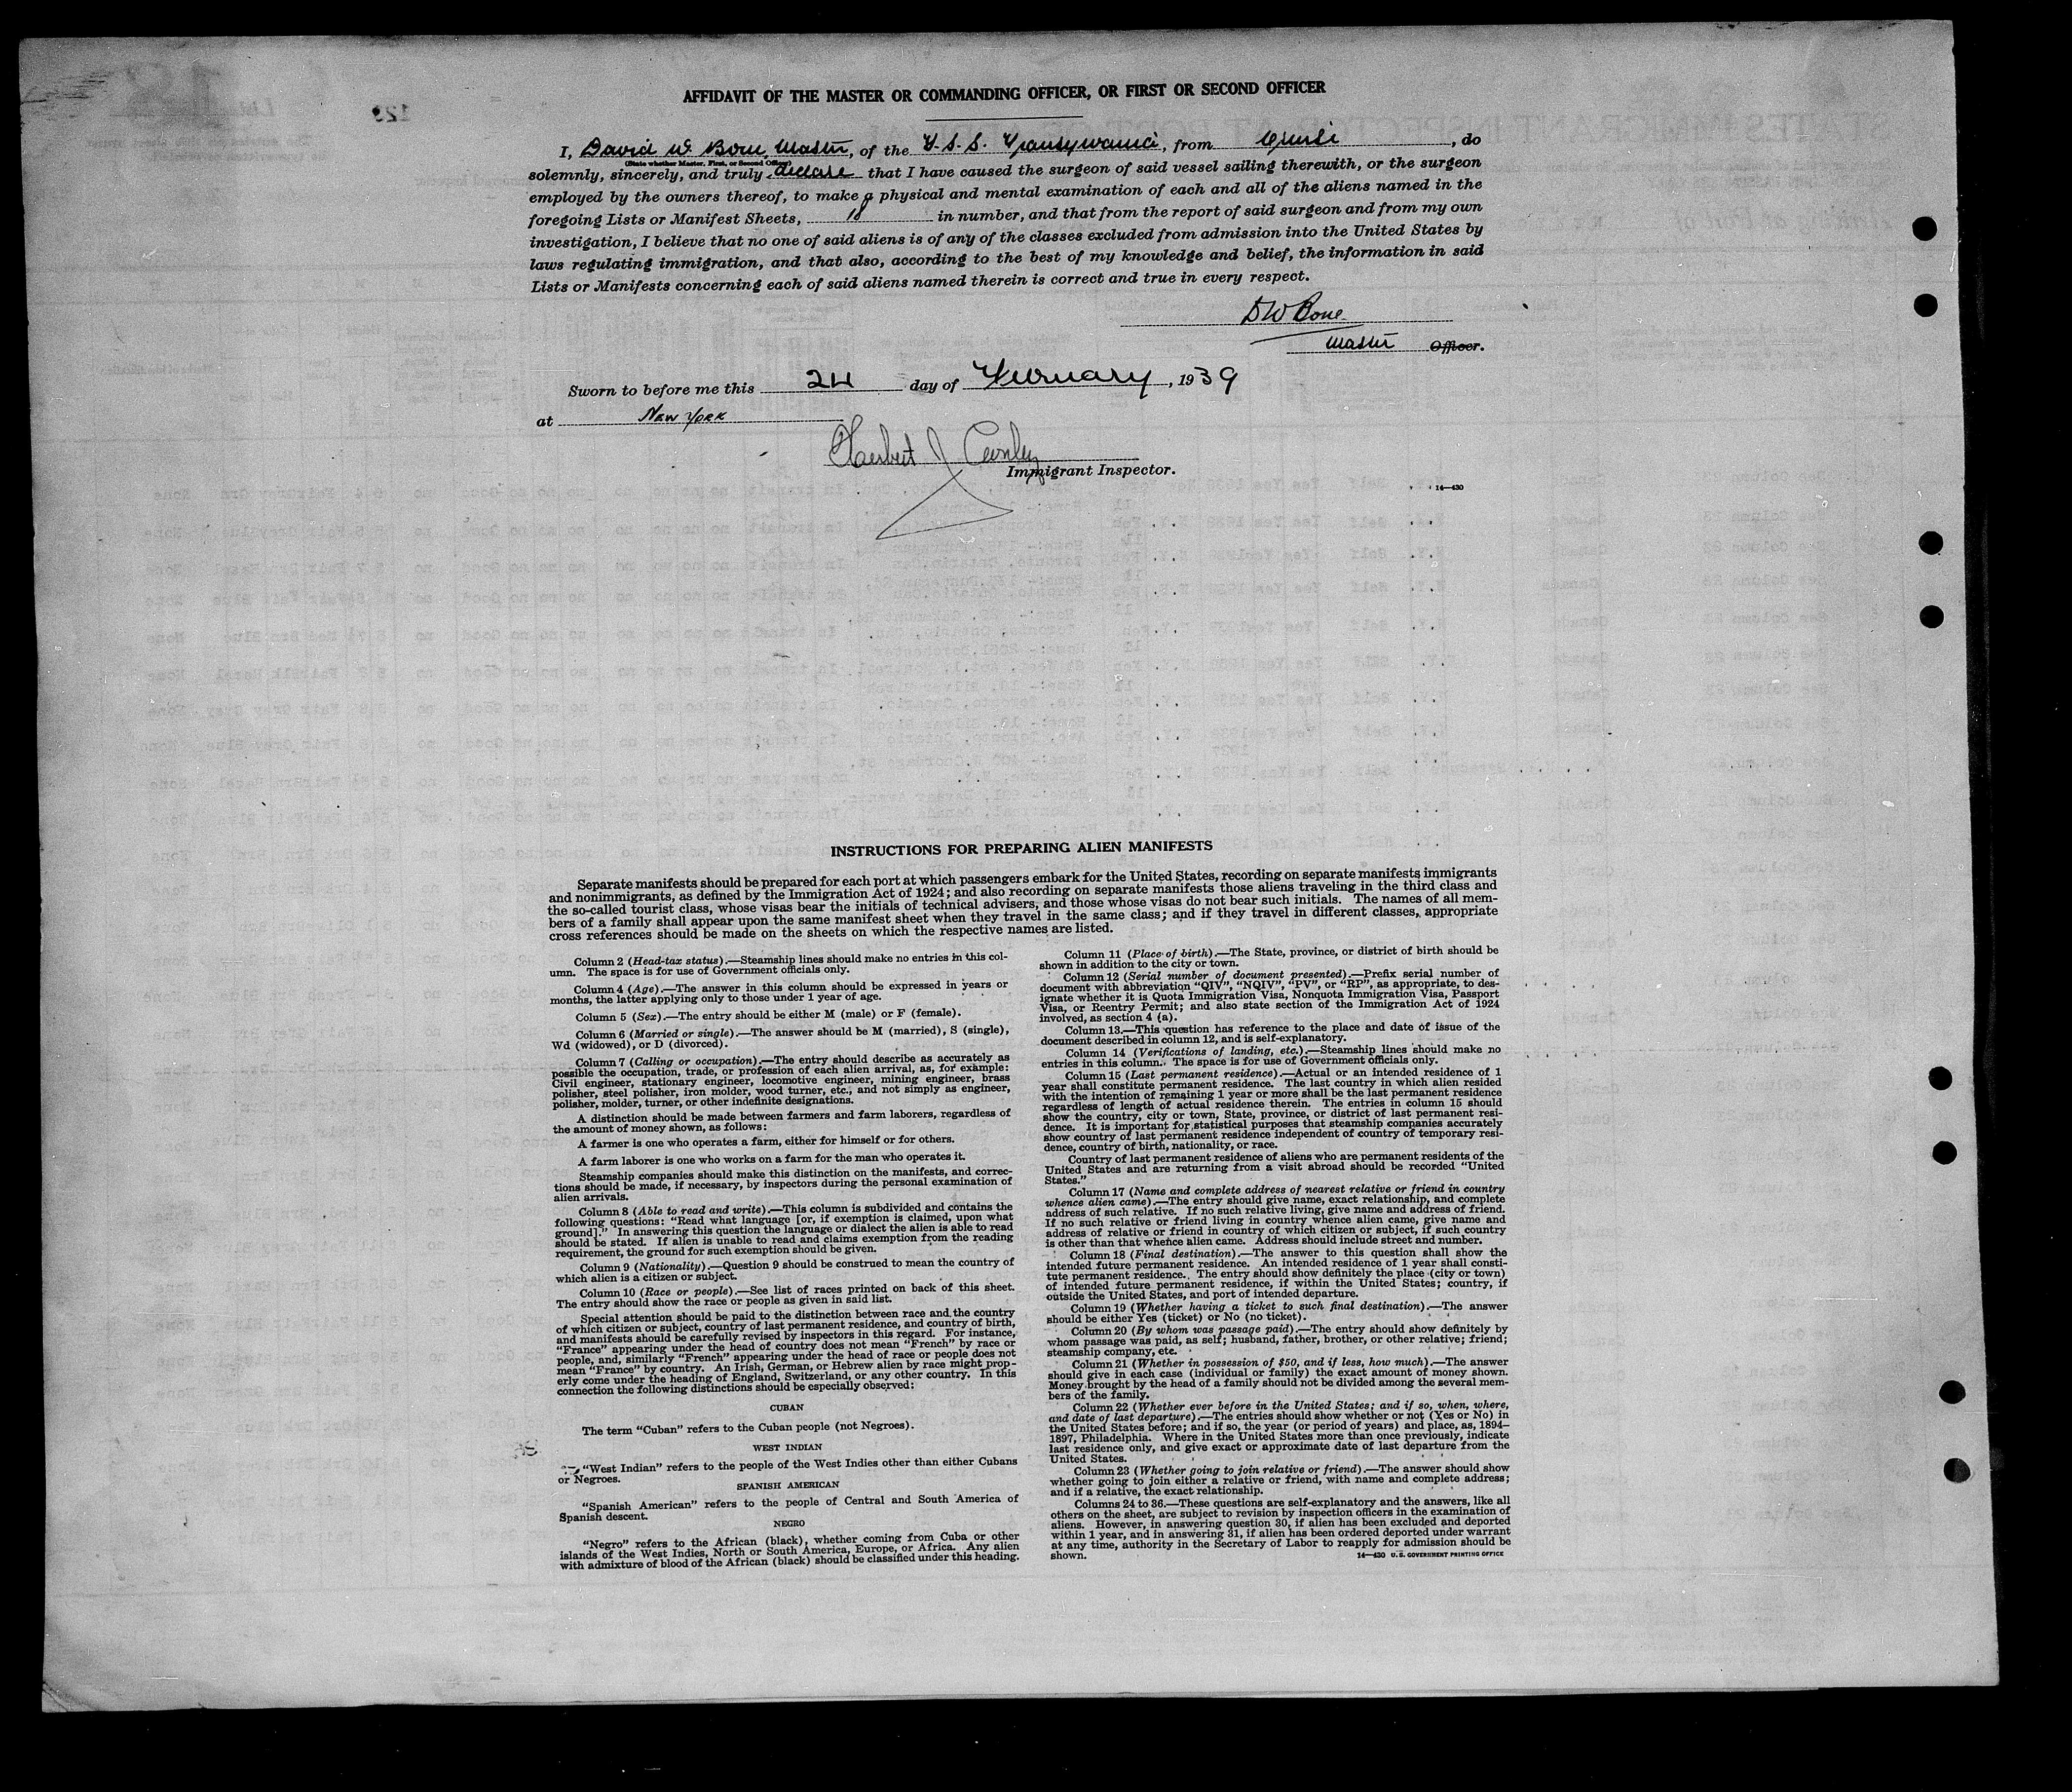 AFFIDAVIT OF THE MASTER OR COMMANDING OFFICER, OR FIRST OR SECOND OFFICER
I, David W. Bone, Master, of the from , do
(State whether Master, First, or Second Officer)
solemnly, sincerely, and truly declare that I have caused the surgeon of said vessel sailing therewith, or the surgeon
employed by the owners thereof, to make a physical and mental examination of each and all of the aliens named in the
foregoing Lists or Manifest Sheets, 18 in number, and that from the report of said surgeon and from my own
investigation, I believe that no one of said aliens is of any of the classes excluded from admission into the United States by
laws regulating immigration, and that also, according to the best of my knowledge and belief, the information in said
Lists or Manifests concerning each of said aliens named therein is correct and true in every respect.
D W Bone
Master Officer.
Sworn to before me this 24 day of February, 1939
at New York
Herbert J
Immigrant Inspector.
14—430
INSTRUCTIONS FOR PREPARING ALIEN MANIFESTS
Separate manifests should be prepared for each port at which passengers embark for the United States, recording on separate manifests immigrants
and nonimmigrants, as defined by the Immigration Act of 1924; and also recording on separate manifests those aliens traveling in the third class and
the so-called tourist class, whose visas bear the initials of technical advisers, and those whose visas do not bear such initials. The names of all mem-
bers of a family shall appear upon the same manifest sheet when they travel in the same class; and if they travel in different classes, appropriate
cross references should be made on the sheets on which the respective names are listed.
Column 2 (Head-tax status).—Steamship lines should make no entries in this col-
umn. The space is for use of Government officials only.
Column 4 (Age).—The answer in this column should be expressed in years or
months, the latter applying only to those under 1 year of age.
Column 5 (Sex).—The entry should be either M (male) or F (female).
Column 6 (Married or single).—The answer should be M (married), S (single),
Wd (widowed), or D (divorced).
Column 7 (Calling or occupation).—The entry should describe as accurately as
possible the occupation, trade, or profession of each alien arrival, as, for example:
Civil engineer, stationary engineer, locomotive engineer, mining engineer, brass
polisher, steel polisher, iron molder, wood turner, etc., and not simply as engineer,
polisher, molder, turner, or other indefinite designations.
A distinction should be made between farmers and farm laborers, regardless of
the amount of money shown, as follows:
A farmer is one who operates a farm, either for himself or for others.
A farm laborer is one who works on a farm for the man who operates it.
Steamship companies should make this distinction on the manifests, and correc-
tions should be made, if necessary, by inspectors during the personal examination of
alien arrivals.
Column 8 (Able to read and write).—This column is subdivided and contains the
following questions: “Read what language [or, if exemption is claimed, upon what
ground].” In answering this question the language or dialect the alien is able to read
should be stated. If alien is unable to read and claims exemption from the reading
requirement, the ground for such exemption should be given.
Column 9 (Nationality).—Question 9 should be construed to mean the country of
which alien is a citizen or subject.
Column 10 (Race or people).—See list of races printed on back of this sheet.
The entry should show the race or people as given in said list.
Special attention should be paid to the distinction between race and the country
of which citizen or subject, country of last permanent residence, and country of birth,
and manifests should be carefully revised by inspectors in this regard. For instance,
“France” appearing under the head of country does not mean “French” by race or
people, and, similarly “French” appearing under the head of race or people does not
mean “France” by country. An Irish, German, or Hebrew alien by race might prop-
erly come under the heading of England, Switzerland, or any other country. In this
connection the following distinctions should be especially observed:
CUBAN
The term “Cuban” refers to the Cuban people (not Negroes).
WEST INDIAN
“West Indian” refers to the people of the West Indies other than either Cubans
or Negroes.
SPANISH AMERICAN
“Spanish American” refers to the people of Central and South America of
Spanish descent.
NEGRO
“Negro” refers to the African (black), whether coming from Cuba or other
islands of the West Indies, North or South America, Europe, or Africa. Any alien
with admixture of blood of the African (black) should be classified under this heading.
Column 11 (Place of birth).—The State, province, or district of birth should be
shown in addition to the city or town.
Column 12 (Serial number of document presented).—Prefix serial number of
document with abbreviation “QIV”, “NQIV”, “PV”, or “RP”, as appropriate, to des-
ignate whether it is Quota Immigration Visa, Nonquota Immigration Visa, Passport
Visa, or Reentry Permit; and also state section of the Immigration Act of 1924
involved, as section 4 (a).
Column 13.—This question has reference to the place and date of issue of the
document described in column 12, and is self-explanatory.
Column 14 (Verifications of landing, etc.).—Steamship lines should make no
entries in this column. The space is for use of Government officials only.
Column 15 (Last permanent residence).—Actual or an intended residence of 1
year shall constitute permanent residence. The last country in which alien resided
with the intention of remaining 1 year or more shall be the last permanent residence
regardless of length of actual residence therein. The entries in column 15 should
show the country, city or town, State, province, or district of last permanent resi-
dence. It is important for statistical purposes that steamship companies accurately
show country of last permanent residence independent of country of temporary resi-
dence, country of birth, nationality, or race.
Country of last permanent residence of aliens who are permanent residents of the
United States and are returning from a visit abroad should be recorded “United
States.”
Column 17 (Name and complete address of nearest relative or friend in country
whence alien came).—The entry should give name, exact relationship, and complete
address of such relative. If no such relative living, give name and address of friend.
If no such relative or friend living in country whence alien came, give name and
address of relative or friend in country of which citizen or subject, if such country
is other than that whence alien came. Address should include street and number.
Column 18 (Final destination).—The answer to this question shall show the
intended future permanent residence. An intended residence of 1 year shall consti-
tute permanent residence. The entry should show definitely the place (city or town)
of intended future permanent residence, if within the United States; country, if
outside the United States, and port of intended departure.
Column 19 (Whether having a ticket to such final destination).—The answer
should be either Yes (ticket) or No (no ticket).
Column 20 (By whom was passage paid).—The entry should show definitely by
whom passage was paid, as self; husband, father, brother, or other relative; friend;
steamship company, etc.
Column 21 (Whether in possession of $50, and if less, how much).—The answer
should give in each case (individual or family) the exact amount of money shown.
Money brought by the head of a family should not be divided among the several mem-
bers of the family.
Column 22 (Whether ever before in the United States; and if so, when, where,
and date of last departure).—The entries should show whether or not (Yes or No) in
the United States before; and if so, the year (or period of years) and place, as, 1894–
1897, Philadelphia. Where in the United States more than once previously, indicate
last residence only, and give exact or approximate date of last departure from the
United States.
Column 23 (Whether going to join relative or friend).—The answer should show
whether going to join either a relative or friend, with name and complete address;
and if a relative, the exact relationship.
Columns 24 to 36.—These questions are self-explanatory and the answers, like all
others on the sheet, are subject to revision by inspection officers in the examination of
aliens. However, in answering question 30, if alien has been excluded and deported
within 1 year, and in answering 31, if alien has been ordered deported under warrant
at any time, authority in the Secretary of Labor to reapply for admission should be
shown.
14—430 U. S. GOVERNMENT PRINTING OFFICE